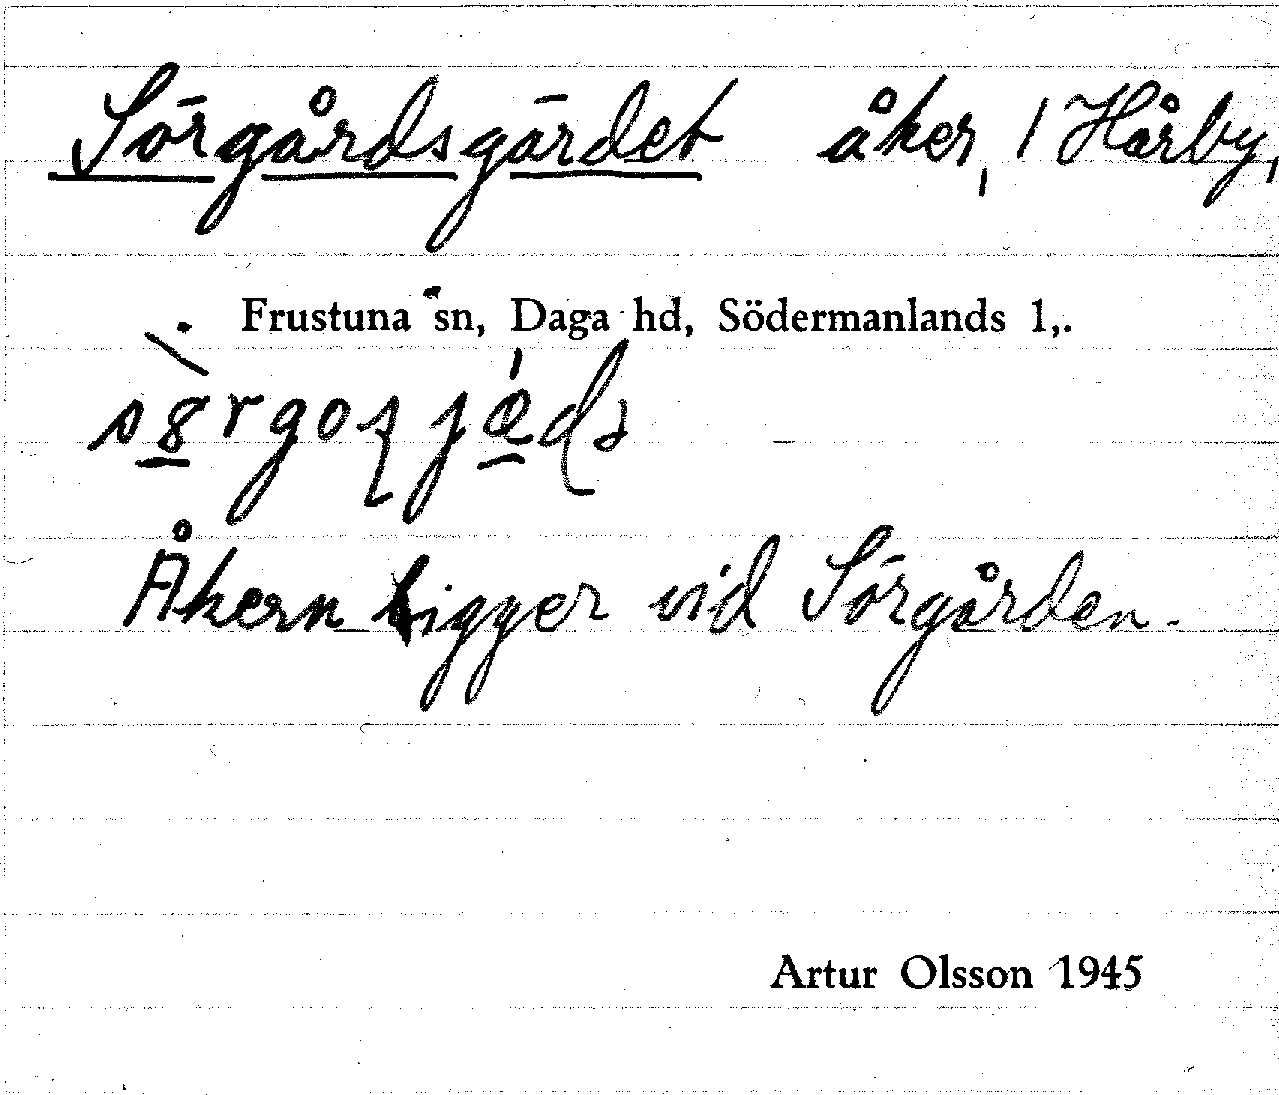 Sörgårdsgärdet åker, / Hårby,
Frustuna sn, Daga hd, Södermanlands l,.
Åkern ligger vid Sörgården.
Artur Olsson 1945